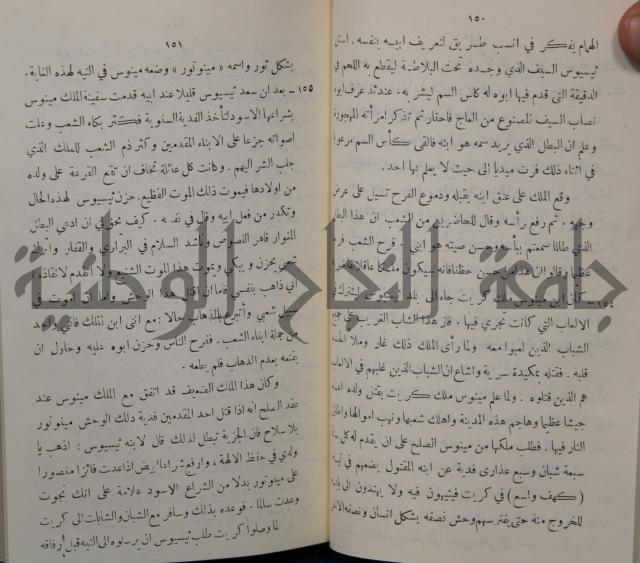 ١٥٠
الهام يفكر في انسب طريق لتعريف ابيه بنفسه. امتل
ثيسيوس السيف الذي وجده تحت البلاطة ليقطع به اللحم في
الدقيقة التي قدم فيها ابوه له كاس السم ليشربه. عندئذ عرف ابوه
نصاب السيف المصنوع من العاج فاحتار ثم تذكر امرأته المهجورة
وعلم ان البطل الذي يريد سمه هو ابنه فالقى كأس السم مرعوبا
في اثناء ذلك فرت ميديا الى حيث لا يعلم بها احد.
وقع الملك على عنق ابنه يقبله ودموع الفرح تسيل على عرض
وجهه. ثم رفع رأسه وقال للحاضرين من الشعب ان هذا البطل
الذي طالما سمعتم وحسن صيته هو ابني. فرح الشعب
وقالوا ان من حسن حظنا فانه سيكون ملكا عاقلا
كان ابن مينوس ملك كريت جاء الى
الالعاب التي كانت تجري فيها. فاز هذا الشاب الغريب على جميع
الشباب الذين لعبوا معه ولما رأى الملك ذلك غار وملا
قلبه. فقتله بمكيدة سرية واشاع ان الشباب الذين غلبهم في الالعاب
هم الذين قتلوه. ولما علم مينوس ملك كريت بقتل ولده
جيشا عظيما وهاجم هذه المدينة واهلك شعبها ونهب اموالها
النار فيها. فطلب ملكها من مينوس الصلح على ان يقدم له كل سنة
سبعة شبان وسبع عذارى فدية عن ابنه المقتول يضعهم في
(كهف واسع) في كريت فيتيهون فيه ولا يهتدون الى
للخروج منه حتى يفترسهم وحش نصفه بشكل انسان ونصفه الاخر
١٥١
بشكل ثور واسمه «مينوتور» وضعه مينوس في التيه لهذه الغاية.
١٥٥ – بعد ان سعد ثيسيوس قليلا عند ابيه قدمت سفينة الملك مينوس
بشراعها الاسود لتأخذ الفدية السنوية فكثر بكاء الشعب وعلت
اصواته جزعا على الابناء المقدمين وكثر ذم الشعب للملك الذي
جلب الشر اليهم. وكانت كل عائلة تخاف ان تقع القرعة على ولده
من اولادها فيموت ذلك الموت الفظيع. حزن ثيسيوس لهذه الحال
وتكدر من فعل ابيه وقال في نفسه. كيف يحق لي ان ادعي البطل
المغوار قاهر اللصوص وناشد السلام في البراري والقفار
شعبي يحزن ويبكي ويموت هذا الموت الشنيع ولا اتقدم لانقاذه
اني ذاهب بنفسي فاما ان اقتل هذا الوحش واما ان اموت في
سبيل شعبي واتبرع بالذهاب حالا: مع انى ابن الملك فانني واحد
من جملة ابناء الشعب. ففرح الناس وحزن ابوه عليه وحاول ان
يقنعه بعدم الذهاب فلم يطعه.
وكان هذا الملك الضعيف قد اتفق مع الملك مينوس عند
عقد الصلح انه اذا قتل احد المقدمين فدية ذلك الوحش مينوتور
بلا سلاح فان الجزية تبطل لذلك قال لابنه ثيسيوس: اذهب يا
ولدي في حفظ الالهة، وارفع شراعا ابيض اذا عدت فائزا منصورا
على مينوتور بدلا من الشراع الاسود علامة على انك نجوت
وعدت سالما. فوعده بذلك وسافر مع الشبان والشابات الى كريت
لما وصلوا كريت طلب ثيسيوس ان يرسلوه الى التيه قبل رفاقه
جامعة النجاح الوطنية